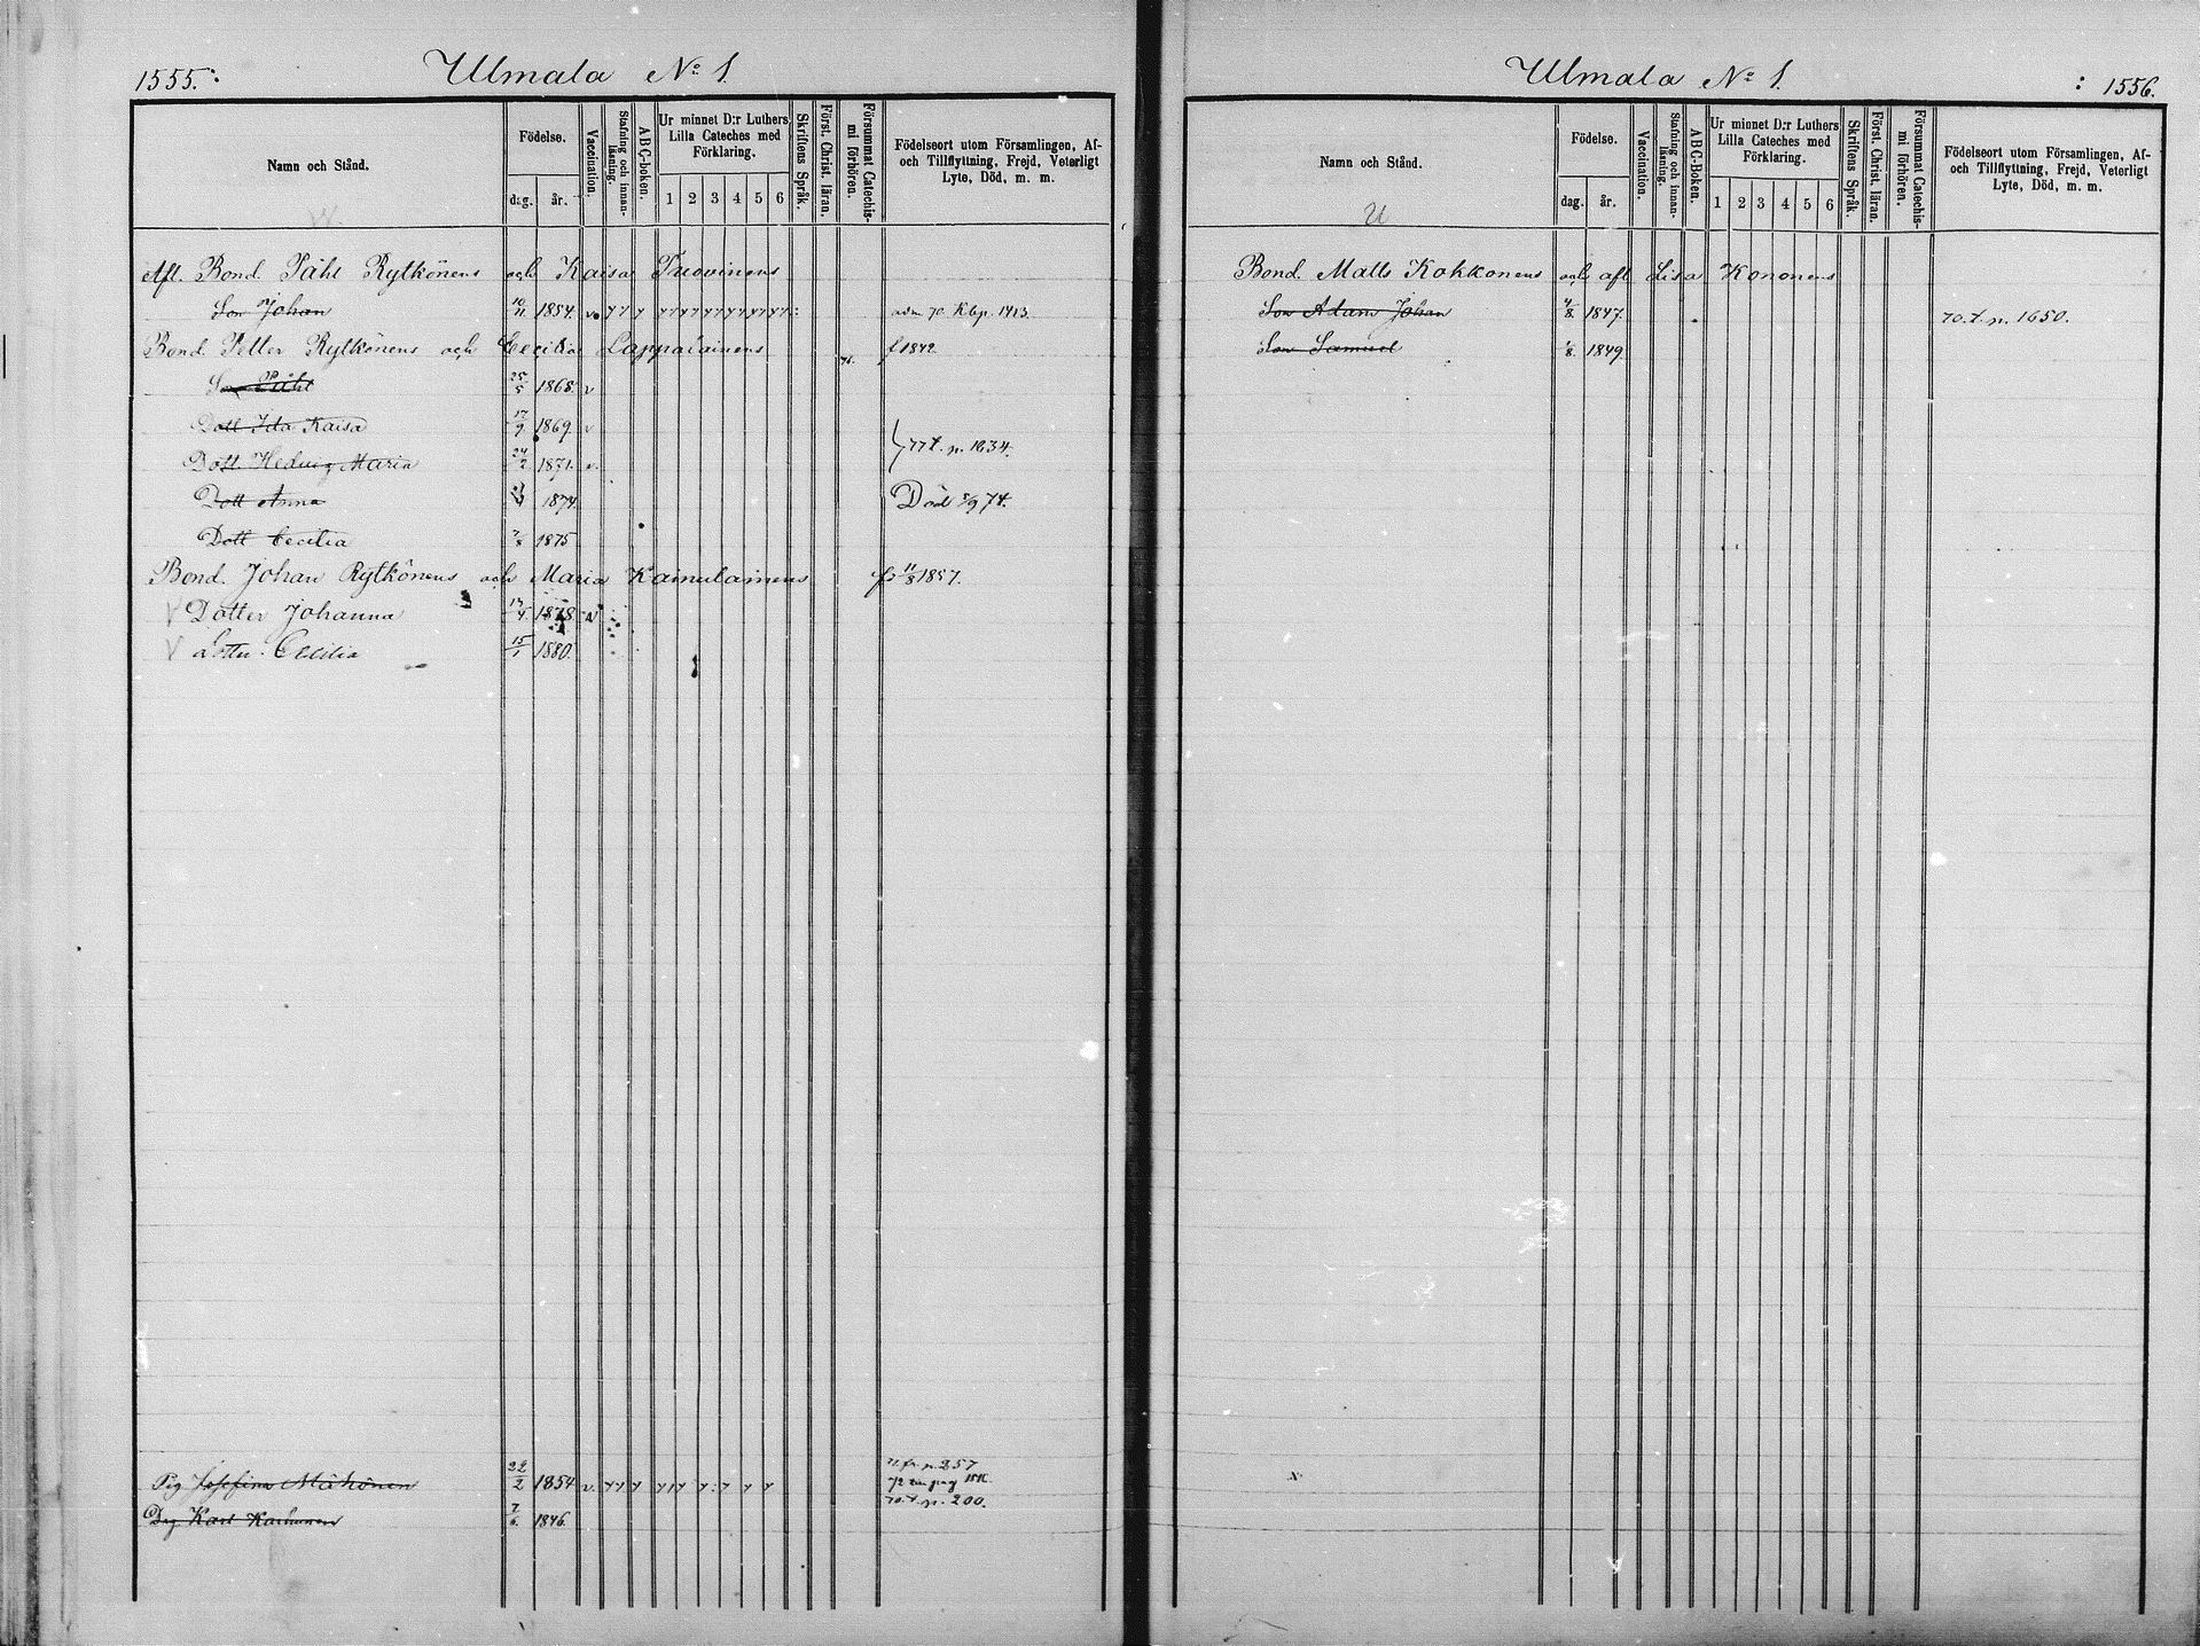 1555.
Ulmala No 1.
Namn och Stånd.
Födelse.
dag.
år.
Vaccination.
Stafning och innanläsning.
ABC-boken.
Ur minnet D:r Luthers Lilla Cateches med Förklaring.
1 2 3 4 5 6
Skriftens Språk.
Först. Christ. läran.
Försummat Catechismi förhören.
Födelseort utom Församlingen, Af- och Tillflyttning, Frejd, Veterligt Lyte, Död, m. m.
Aft. Bond. Påhl Rytkönens och Kaisa Tuovinens
Son Johan 10/11 1854. v adm 70. Kbp. 1413.
Bond. Petter Rytkönens och Cecilia Lappalainens f 1842
Son Påhl 25/5 1868. v
Dott Ida Kaisa 17/9 1869. v
} 77 t. p. 1634.
Dott. Hedvig Maria 24/2 1871. v.
Dott Anna 1874. Död 5/9 74.
Dott Cecilia 7/8 1875
Bond. Johan Rytkönens och Maria Kainulainens f. 11/8 1857.
V Dotter Johanna 1878 v
V Dotter Cecilia 15/1 1880.
Pig Josefina Mähönen 22/2 1854 v. 71 fr. p. 257
Drg Karl Karhunen 7/6. 1846. 70. t. p. 200.
Ulmala No 1.
: 1556.
Namn och Stånd.
U
Födelse.
dag.
år.
Vaccination.
Stafning och innanläsning.
ABC-Boken.
Ur minnet D:r Luthers Lilla Cateches med Förklaring.
1 2 3 4 5 6
Skriftens Språk.
Först. Christ. läran.
Försummat Catechismi förhören.
Födelseort utom Församlingen, Af- och Tillflyttning, Frejd, Veterligt Lyte, Död, m. m.
Bond. Matts Kokkonens och aft Lisa Kononens
Son Adam Johan 4/8. 1847. 70. t. p. 1650.
Son Samuel 1/8. 1849.